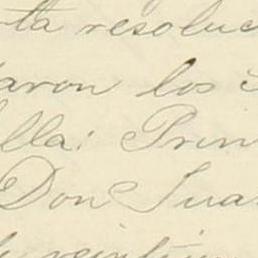 ta resoluc
aron los S
lla: Prin
Don Jua
y veinti